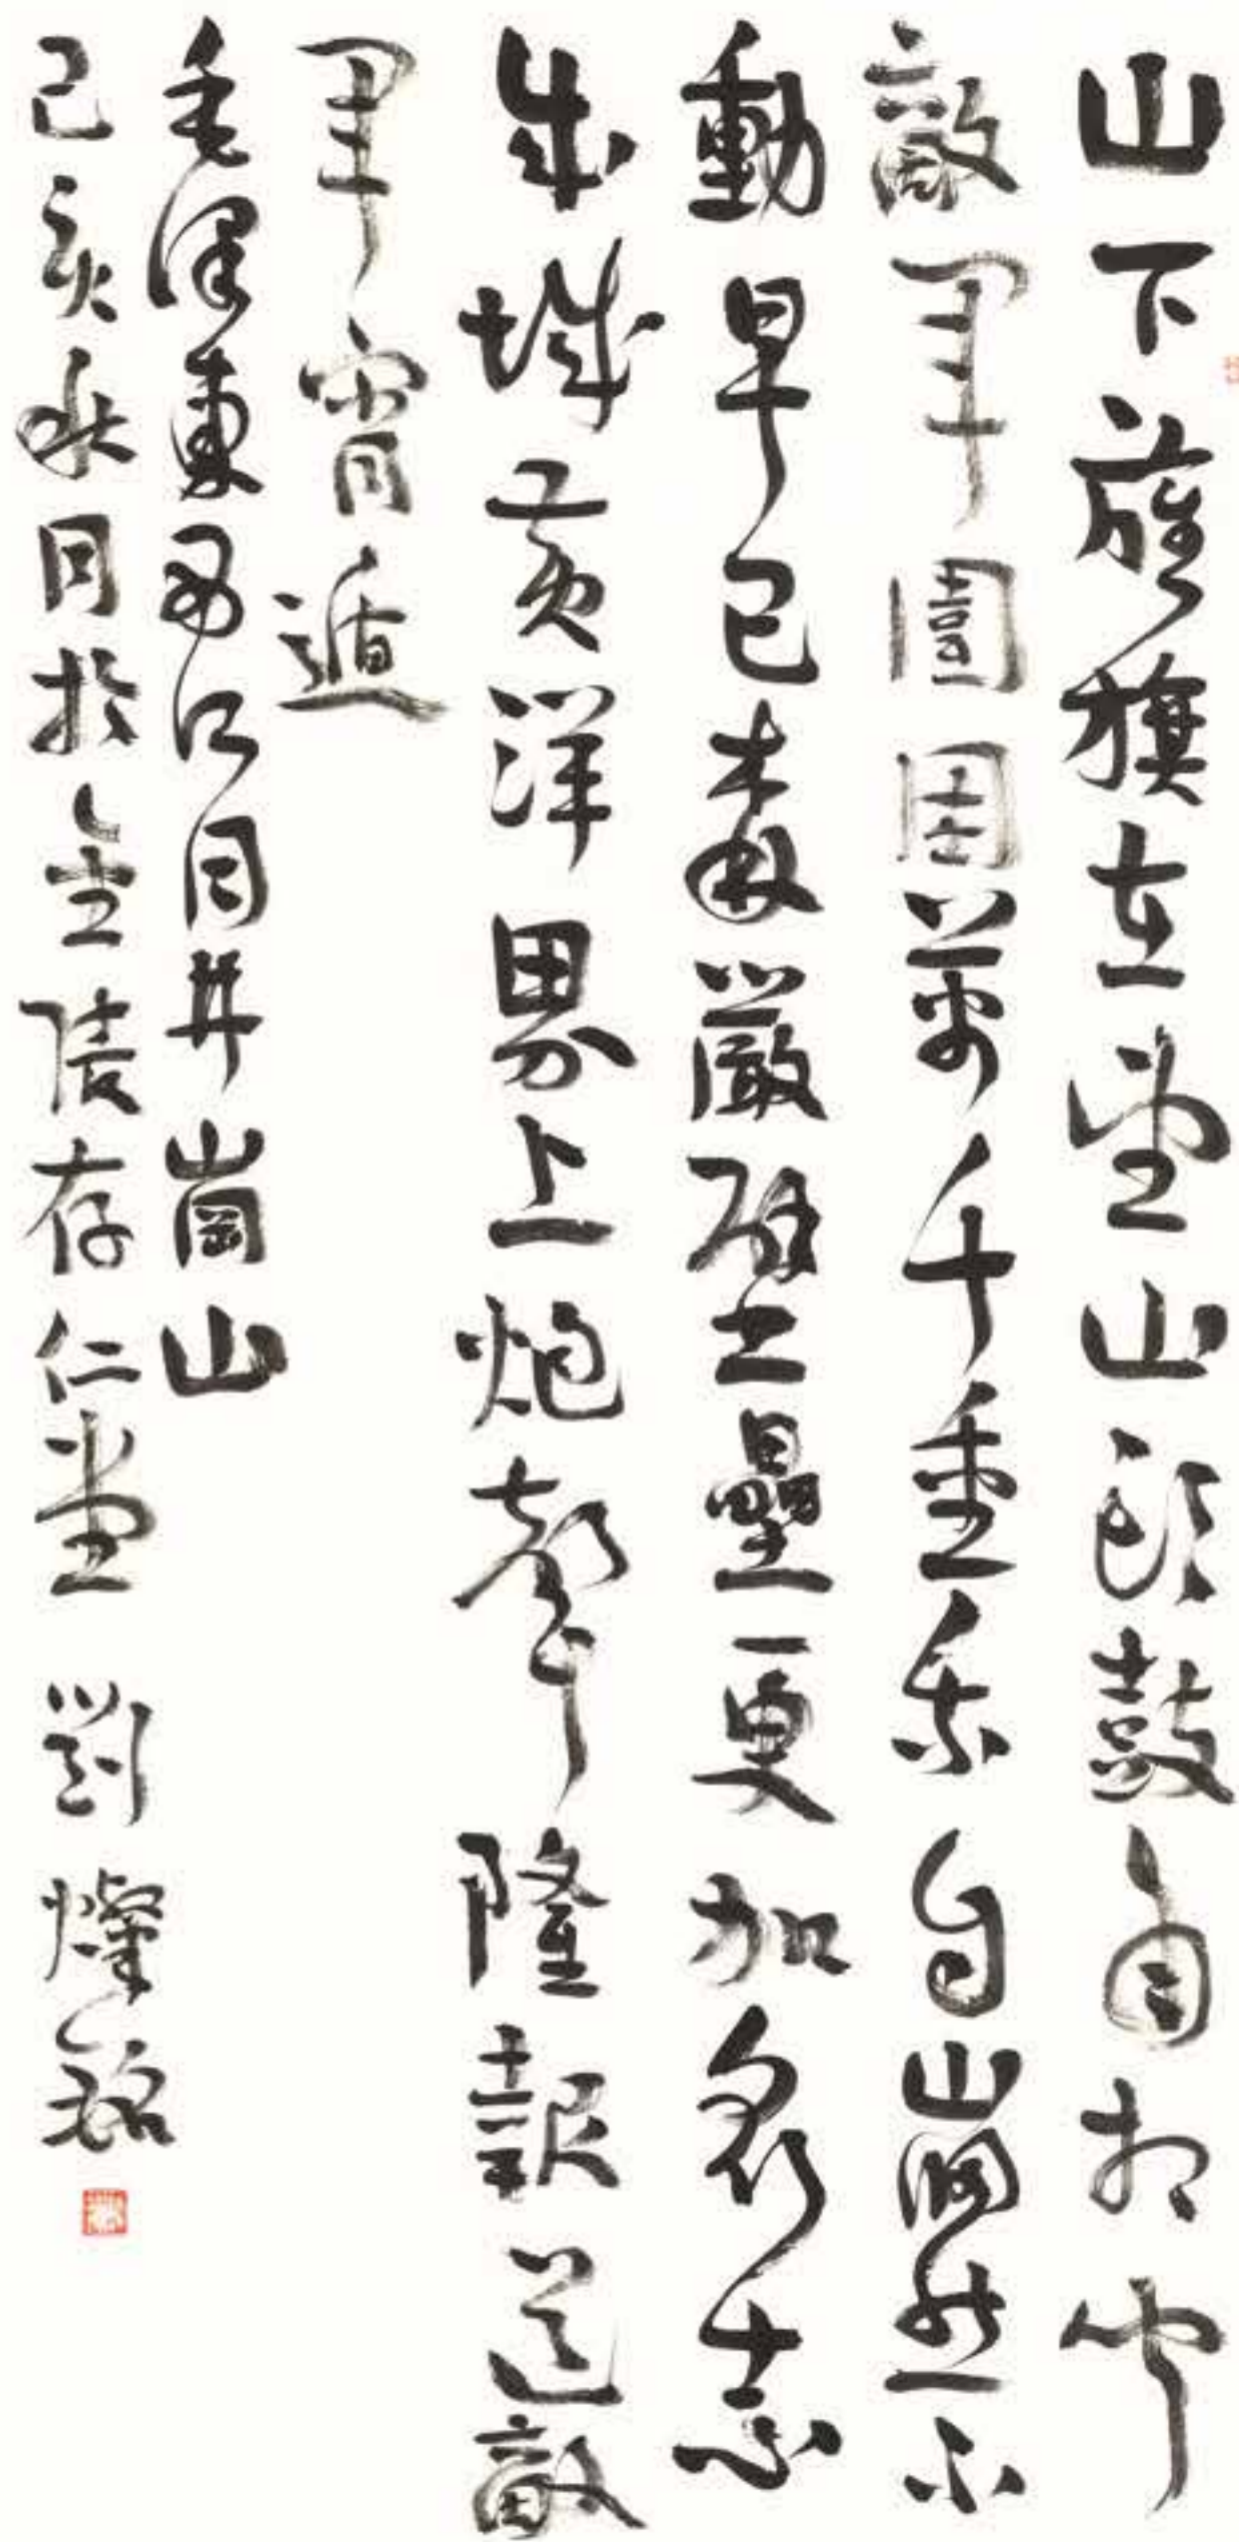 山下旌旗在望山頭鼓角相聞
敵軍圍困萬千重我自巋然不
動早已森嚴壁壘更加衆志
成城黃洋界上炮聲隆報道敵
軍宵遁
毛澤東西江月井崗山
己亥秋月於金陵存仁堂 劉燦銘